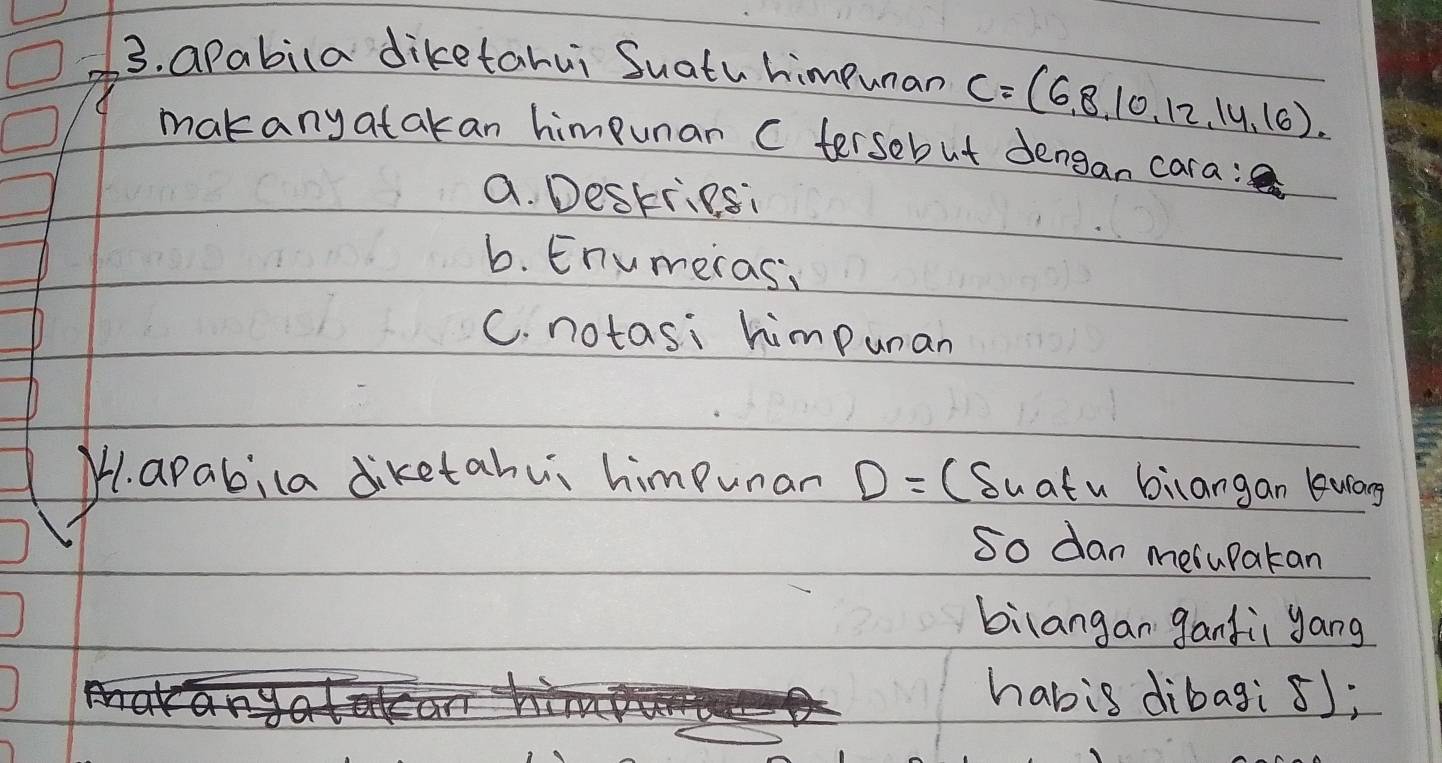 3. apabila diketahui Suatu himpunan C = (6,8,10,12,14,16).
makanyatakan himpunan C tersebut dengan cara:
a. Deskripsi
b. Enumerasi
C. notasi himpunan
4. apabila diketahui himpunan D = (Suatu bilangan kurang
50 dan merupakan
bilangan ganjil yang
makanyatakan himpunan habis dibagi 5);